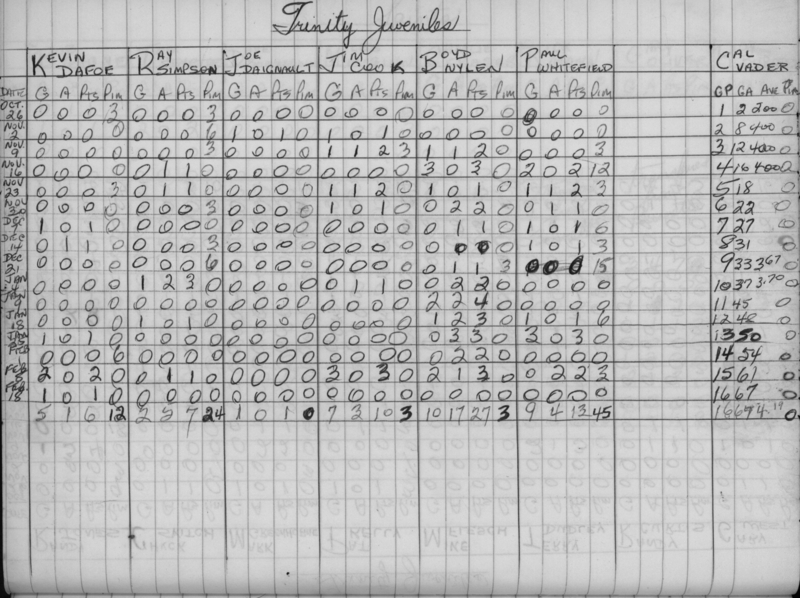 Trinity Juveniles
KEVIN DAFOE RAY SIMPSON JOE DAIGNAULT JIM COOK BOYD NYLEN PAUL WHITEFIELD CAL VADER
DATE G A Pts Pim G A Pts Pim G A Pts Pim G A Pts Pim G A Pts Pim G A Pts Pim GP GA Ave Pim
OCT. 26 0 0 0 3 0 0 0 3 0 0 0 0 0 0 0 0 0 0 0 0 0 0 0 0 1 2 200 0
NOV. 2 0 0 0 0 0 0 0 6 1 0 1 0 1 0 1 0 0 0 0 0 0 0 0 0 2 8 400 0
NOV. 9 0 0 0 0 0 0 0 3 0 0 0 0 1 1 2 3 1 1 2 0 0 0 0 3 3 12 400 0
NOV. 16 0 0 0 0 0 1 1 0 0 0 0 0 0 0 0 0 3 0 3 0 2 0 2 12 4 16 400 0
NOV 23 0 0 0 3 0 1 1 0 0 0 0 0 1 1 2 0 1 0 1 0 1 1 2 3 5 18 0
NOV 30 0 0 0 0 0 0 0 3 0 0 0 0 1 0 1 0 0 2 2 0 0 1 1 0 6 22 0
DEC 1 0 1 0 0 0 0 0 0 0 0 0 0 0 0 0 0 1 1 0 1 0 1 0 7 27 0
DEC 14 0 1 1 0 0 0 0 3 0 0 0 0 0 0 0 0 0 0 0 0 1 0 1 3 8 31 0
DEC 21 0 0 0 0 0 0 0 6 0 0 0 0 0 0 0 0 0 1 1 3 0 0 0 15 9 33 3.67 0
JAN 4 0 0 0 0 1 2 3 0 0 0 0 0 0 1 1 0 0 2 2 0 0 0 0 0 10 37 3.70 0
JAN 9 0 0 0 0 0 0 0 0 0 0 0 0 0 0 0 0 2 2 4 0 0 0 0 0 11 45 0
JAN 18 0 0 0 0 1 0 1 0 0 0 0 0 0 0 0 0 1 2 3 0 1 0 1 6 12 0
JAN 1 0 1 0 0 0 0 0 0 0 0 0 0 0 0 0 0 3 3 0 3 0 3 0 13 50 0
FEB 0 0 0 6 0 0 0 0 0 0 0 0 0 0 0 0 0 2 2 0 0 0 0 0 14 54 0
FEB 2 0 2 0 0 1 1 0 0 0 0 0 3 0 3 0 2 1 3 0 0 2 2 3 15 61 0
FEB 18 1 0 1 0 0 0 0 0 0 0 0 0 0 0 0 0 0 0 0 0 0 0 0 0 16 67 0
5 1 6 12 2 5 7 24 1 0 1 0 7 3 10 3 10 17 27 3 9 4 13 45 16 67 4.19 0